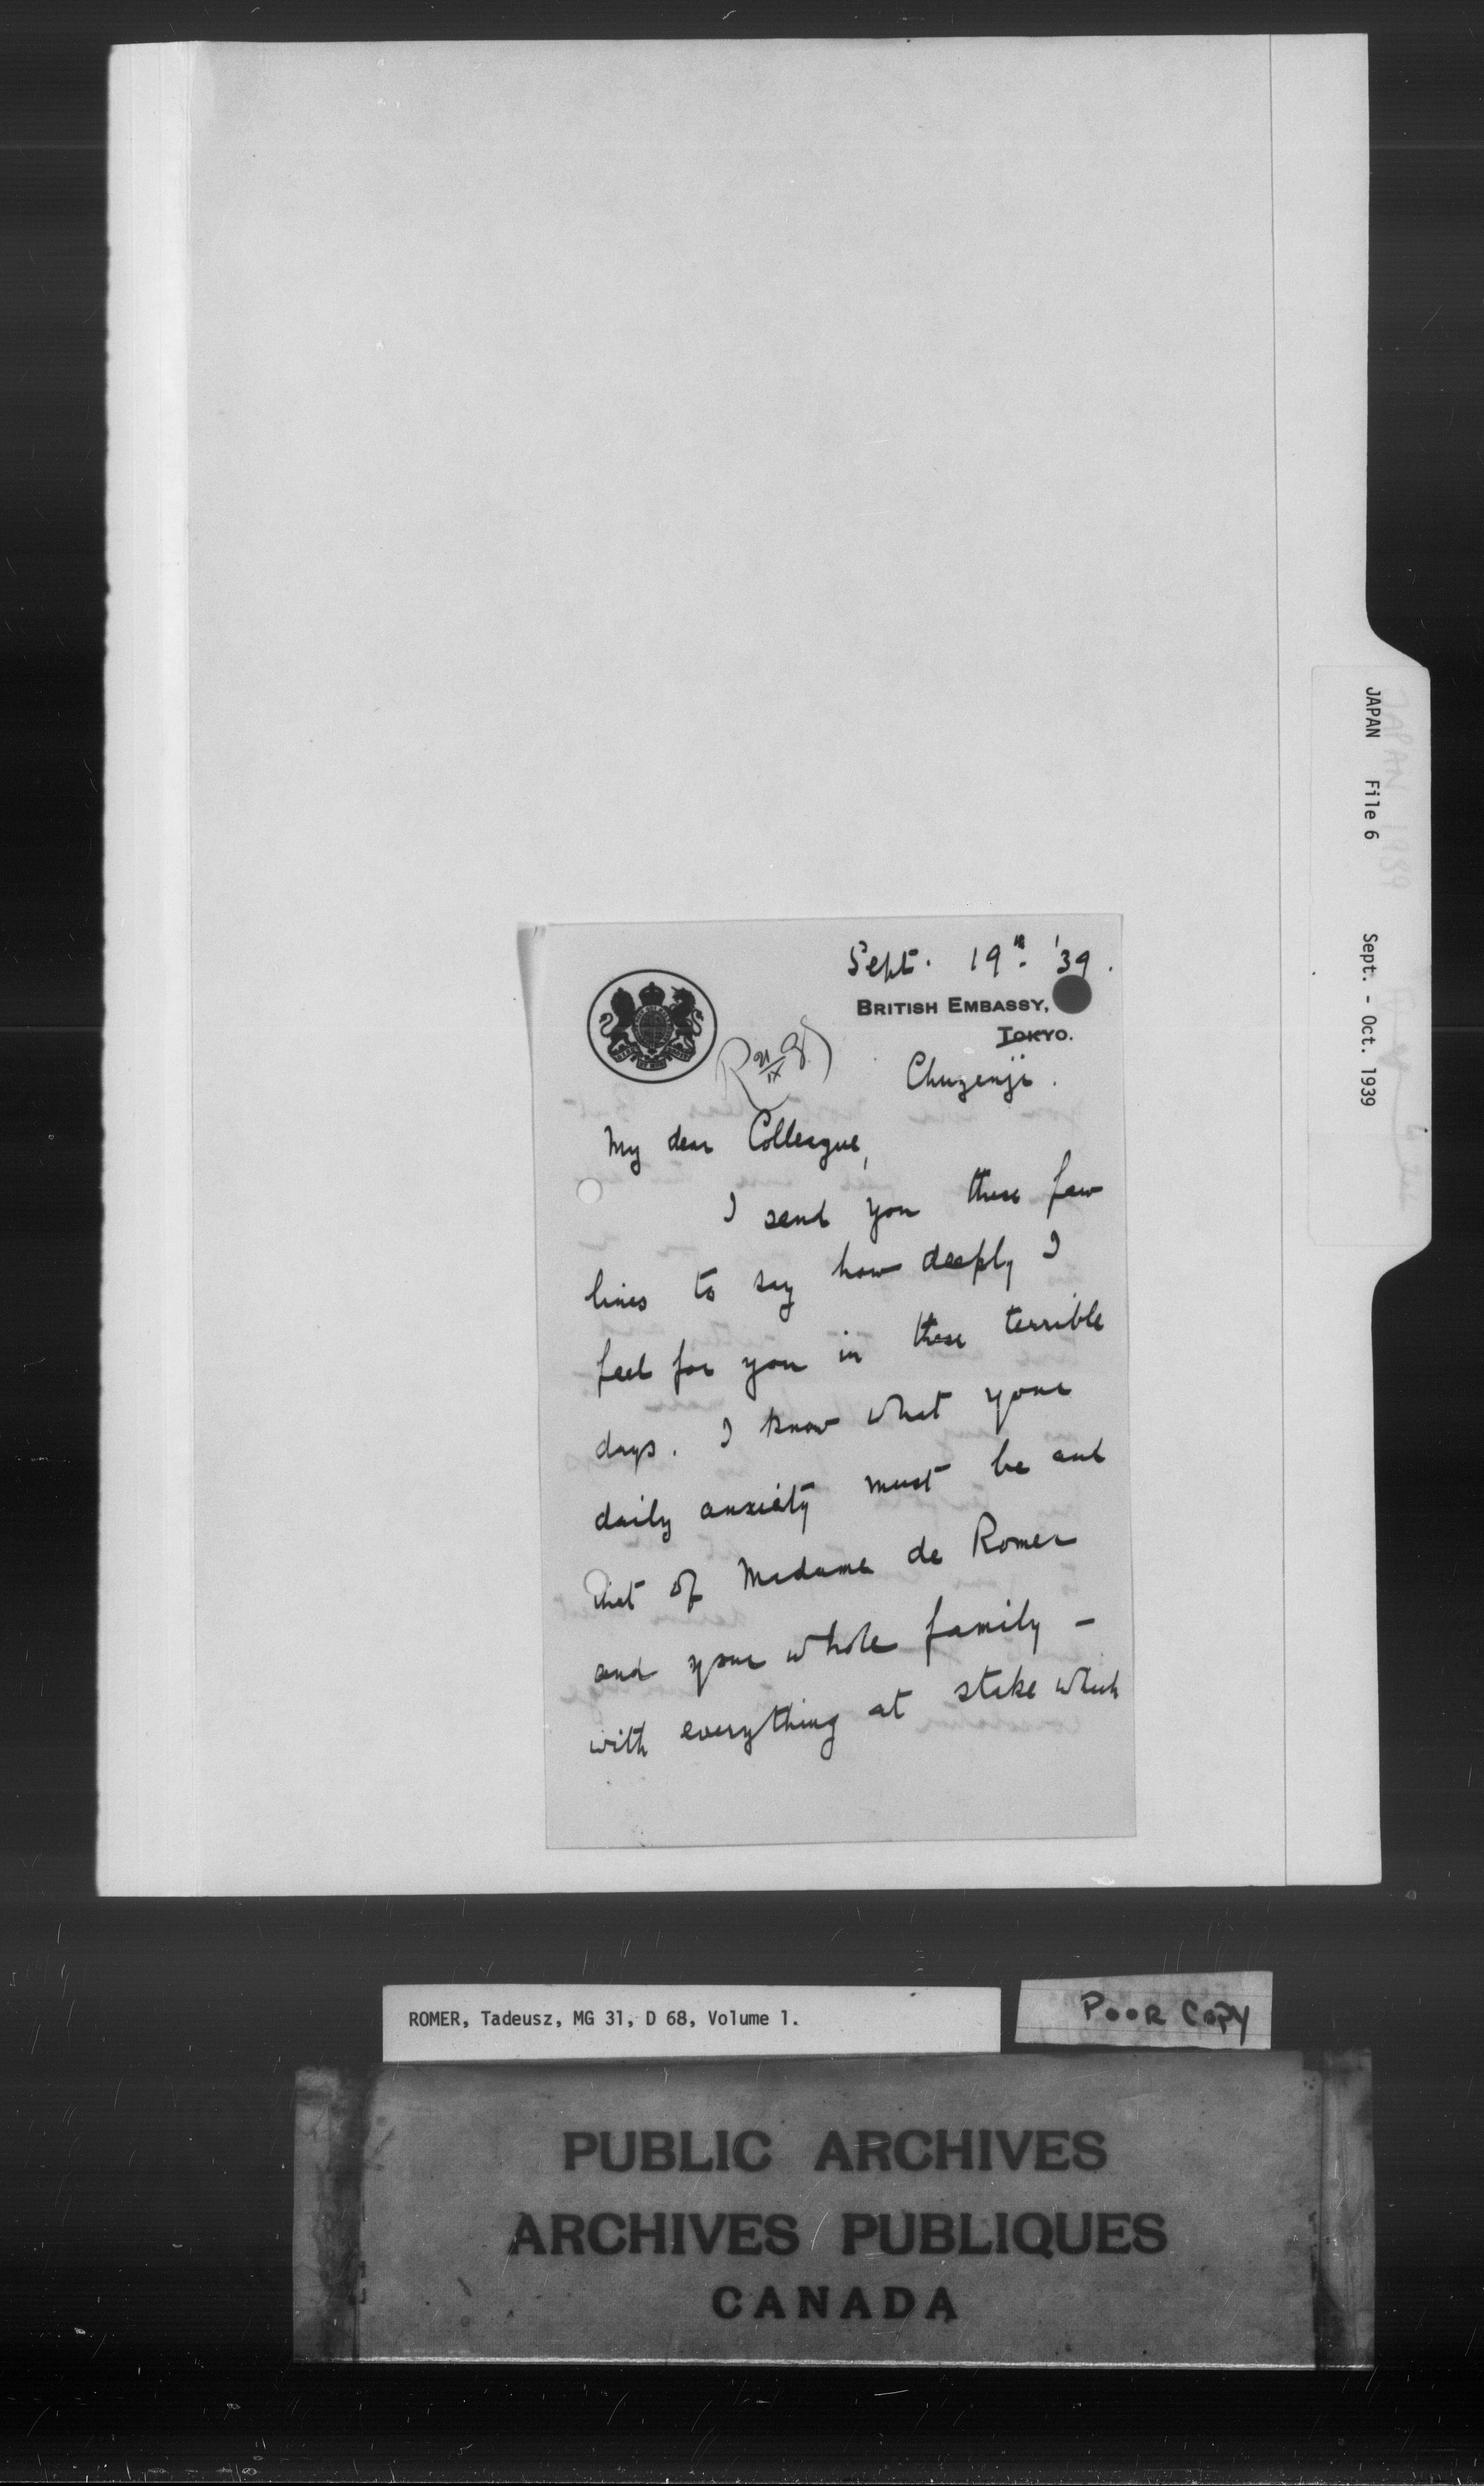 Sept. 19th '39.
BRITISH EMBASSY,
TOKYO.
Chuzenji.
My dear Colleague,
I send you these few
lines to say how deeply I
feel for you in these terrible
days. I know what your
daily anxiety must be and
that of Madame de Romer
and your whole family –
with everything at stake which
JAPAN File 6 Sept. - Oct. 1939
JAPAN 1939
ROMER, Tadeusz, MG 31, D 68, Volume 1.
POOR COPY
PUBLIC ARCHIVES
ARCHIVES PUBLIQUES
CANADA